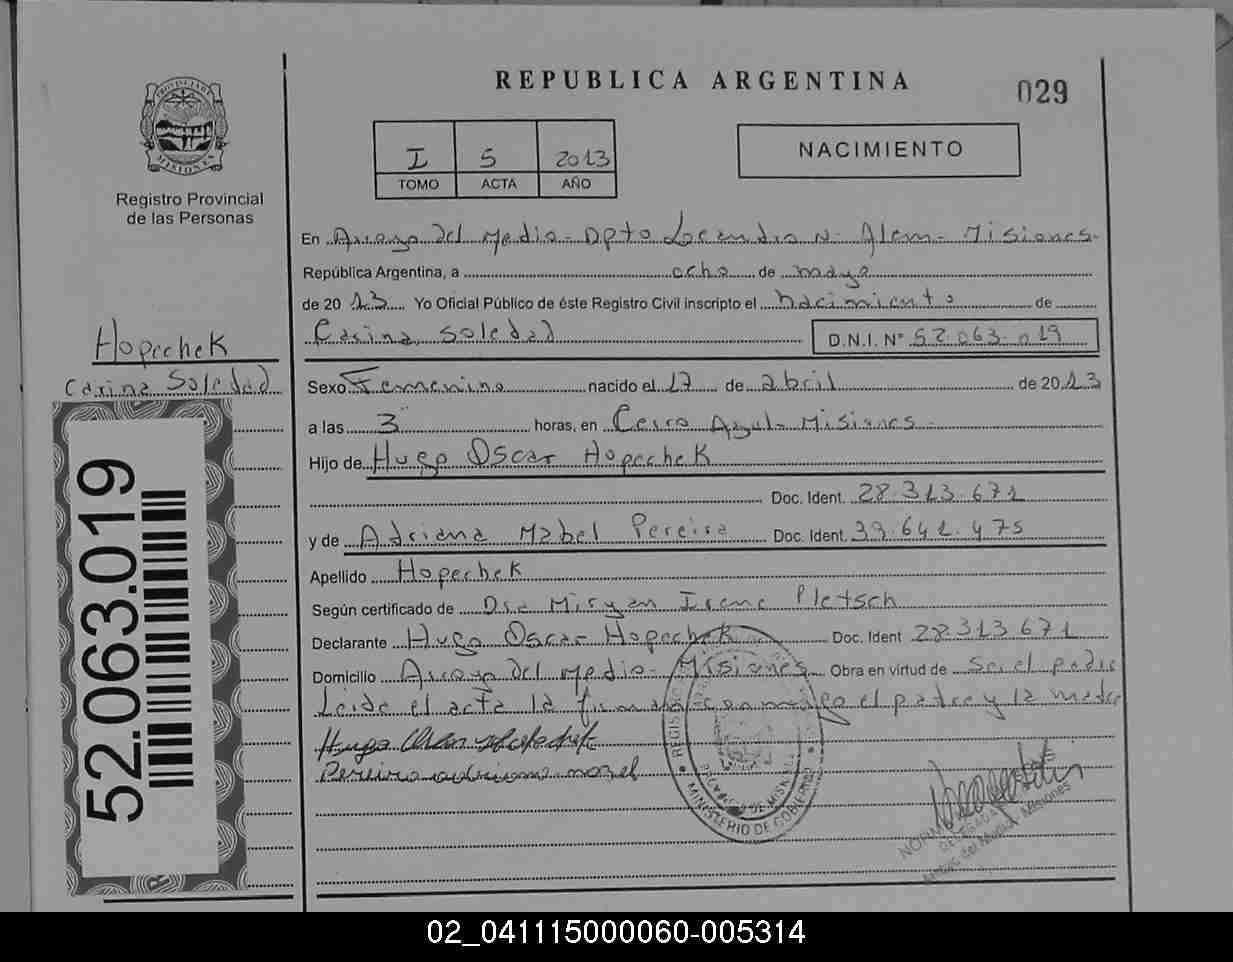 REPUBLICA ARGENTINA
029
PROVINCIA DE MISIONES
Registro Provincial
de las Personas
I 5 2013
TOMO ACTA AÑO
NACIMIENTO
En Arroyo del Medio - Dpto Leandro N. Alem - Misiones -
República Argentina, a ocho de mayo
de 2013 Yo Oficial Público de éste Registro Civil inscripto el nacimiento de
Carina Soledad D.N.I. Nº 52.063.019
Hopechek
Carina Soledad
52.063.019
Sexo Femenino nacido el 17 de abril de 2013
a las 3 horas, en Cerro Azul - Misiones -
Hijo de Hugo Oscar Hopechek
Doc. Ident. 28.313.671
y de Adriana Mabel Pereira Doc. Ident. 39.641.475
Apellido Hopechek
Según certificado de Dra Miryan Irene Pletsch
Declarante Hugo Oscar Hopechek Doc. Ident 28.313.671
Domicilio Arroyo Del Medio - Misiones Obra en virtud de Ser el padre
Leida el acta la firman conmigo el padre y la madre
MINISTERIO DE GOBIERNO
DELEGADA
Arroyo del Medio - Misiones
02_041115000060-005314